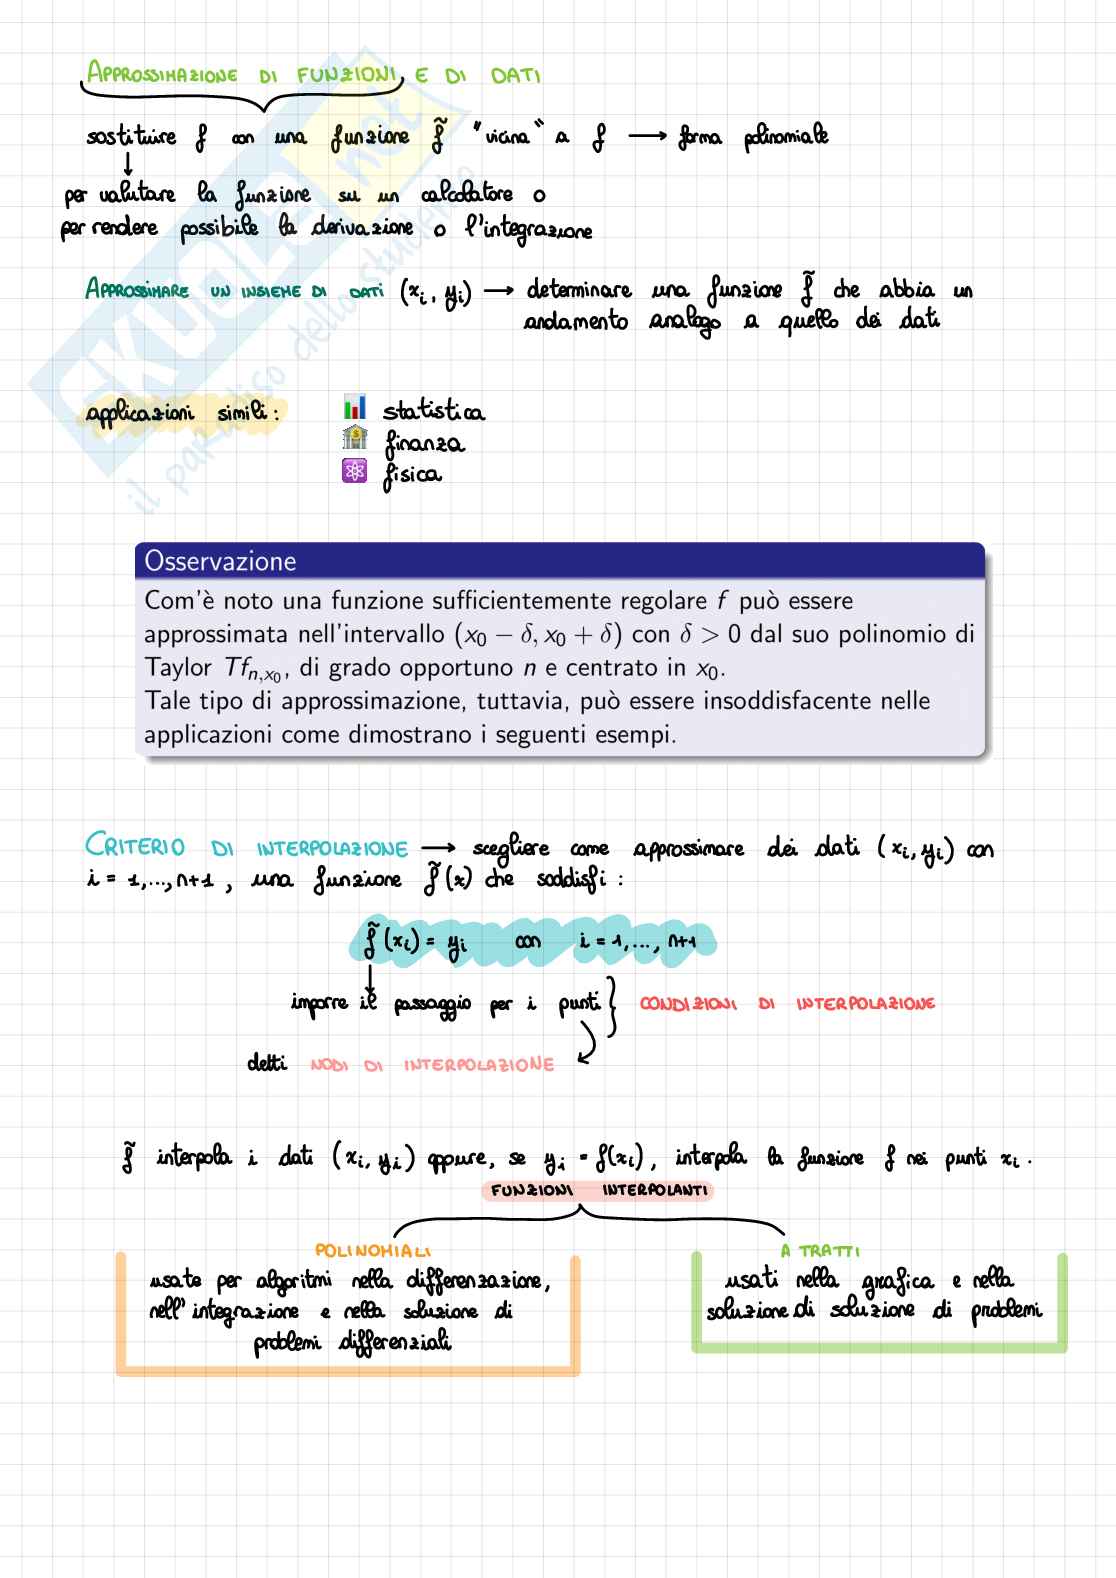 APPROSSIMAZIONE DI FUNZIONI E DI DATI
sostituire f con una funzione f̃ "vicina" a f → forma polinomiale
↓
per valutare la funzione su un calcolatore o
per rendere possibile la derivazione o l'integrazione
APPROSSIMARE UN INSIEME DI DATI (xᵢ, yᵢ) → determinare una funzione f̃ che abbia un
andamento analogo a quello dei dati
applicazioni simili:
statistica
finanza
fisica
Osservazione
Com'è noto una funzione sufficientemente regolare f può essere
approssimata nell'intervallo (x₀ − δ, x₀ + δ) con δ > 0 dal suo polinomio di
Taylor Tfₙ,ₓ₀, di grado opportuno n e centrato in x₀.
Tale tipo di approssimazione, tuttavia, può essere insoddisfacente nelle
applicazioni come dimostrano i seguenti esempi.
CRITERIO DI INTERPOLAZIONE → scegliere come approssimare dei dati (xᵢ, yᵢ) con
i = 1,...,n+1 , una funzione f̃(x) che soddisfi :
f̃(xᵢ) = yᵢ con i = 1,..., n+1
imporre il passaggio per i punti } CONDIZIONI DI INTERPOLAZIONE
detti NODI DI INTERPOLAZIONE
f̃ interpola i dati (xᵢ, yᵢ) oppure, se yᵢ = f(xᵢ), interpola la funzione f nei punti xᵢ.
FUNZIONI INTERPOLANTI
POLINOMIALI
usate per algoritmi nella differenzazione,
nell'integrazione e nella soluzione di
problemi differenziali
A TRATTI
usati nella grafica e nella
soluzione di soluzione di problemi
SKUOLA.net
il paradiso dello studente